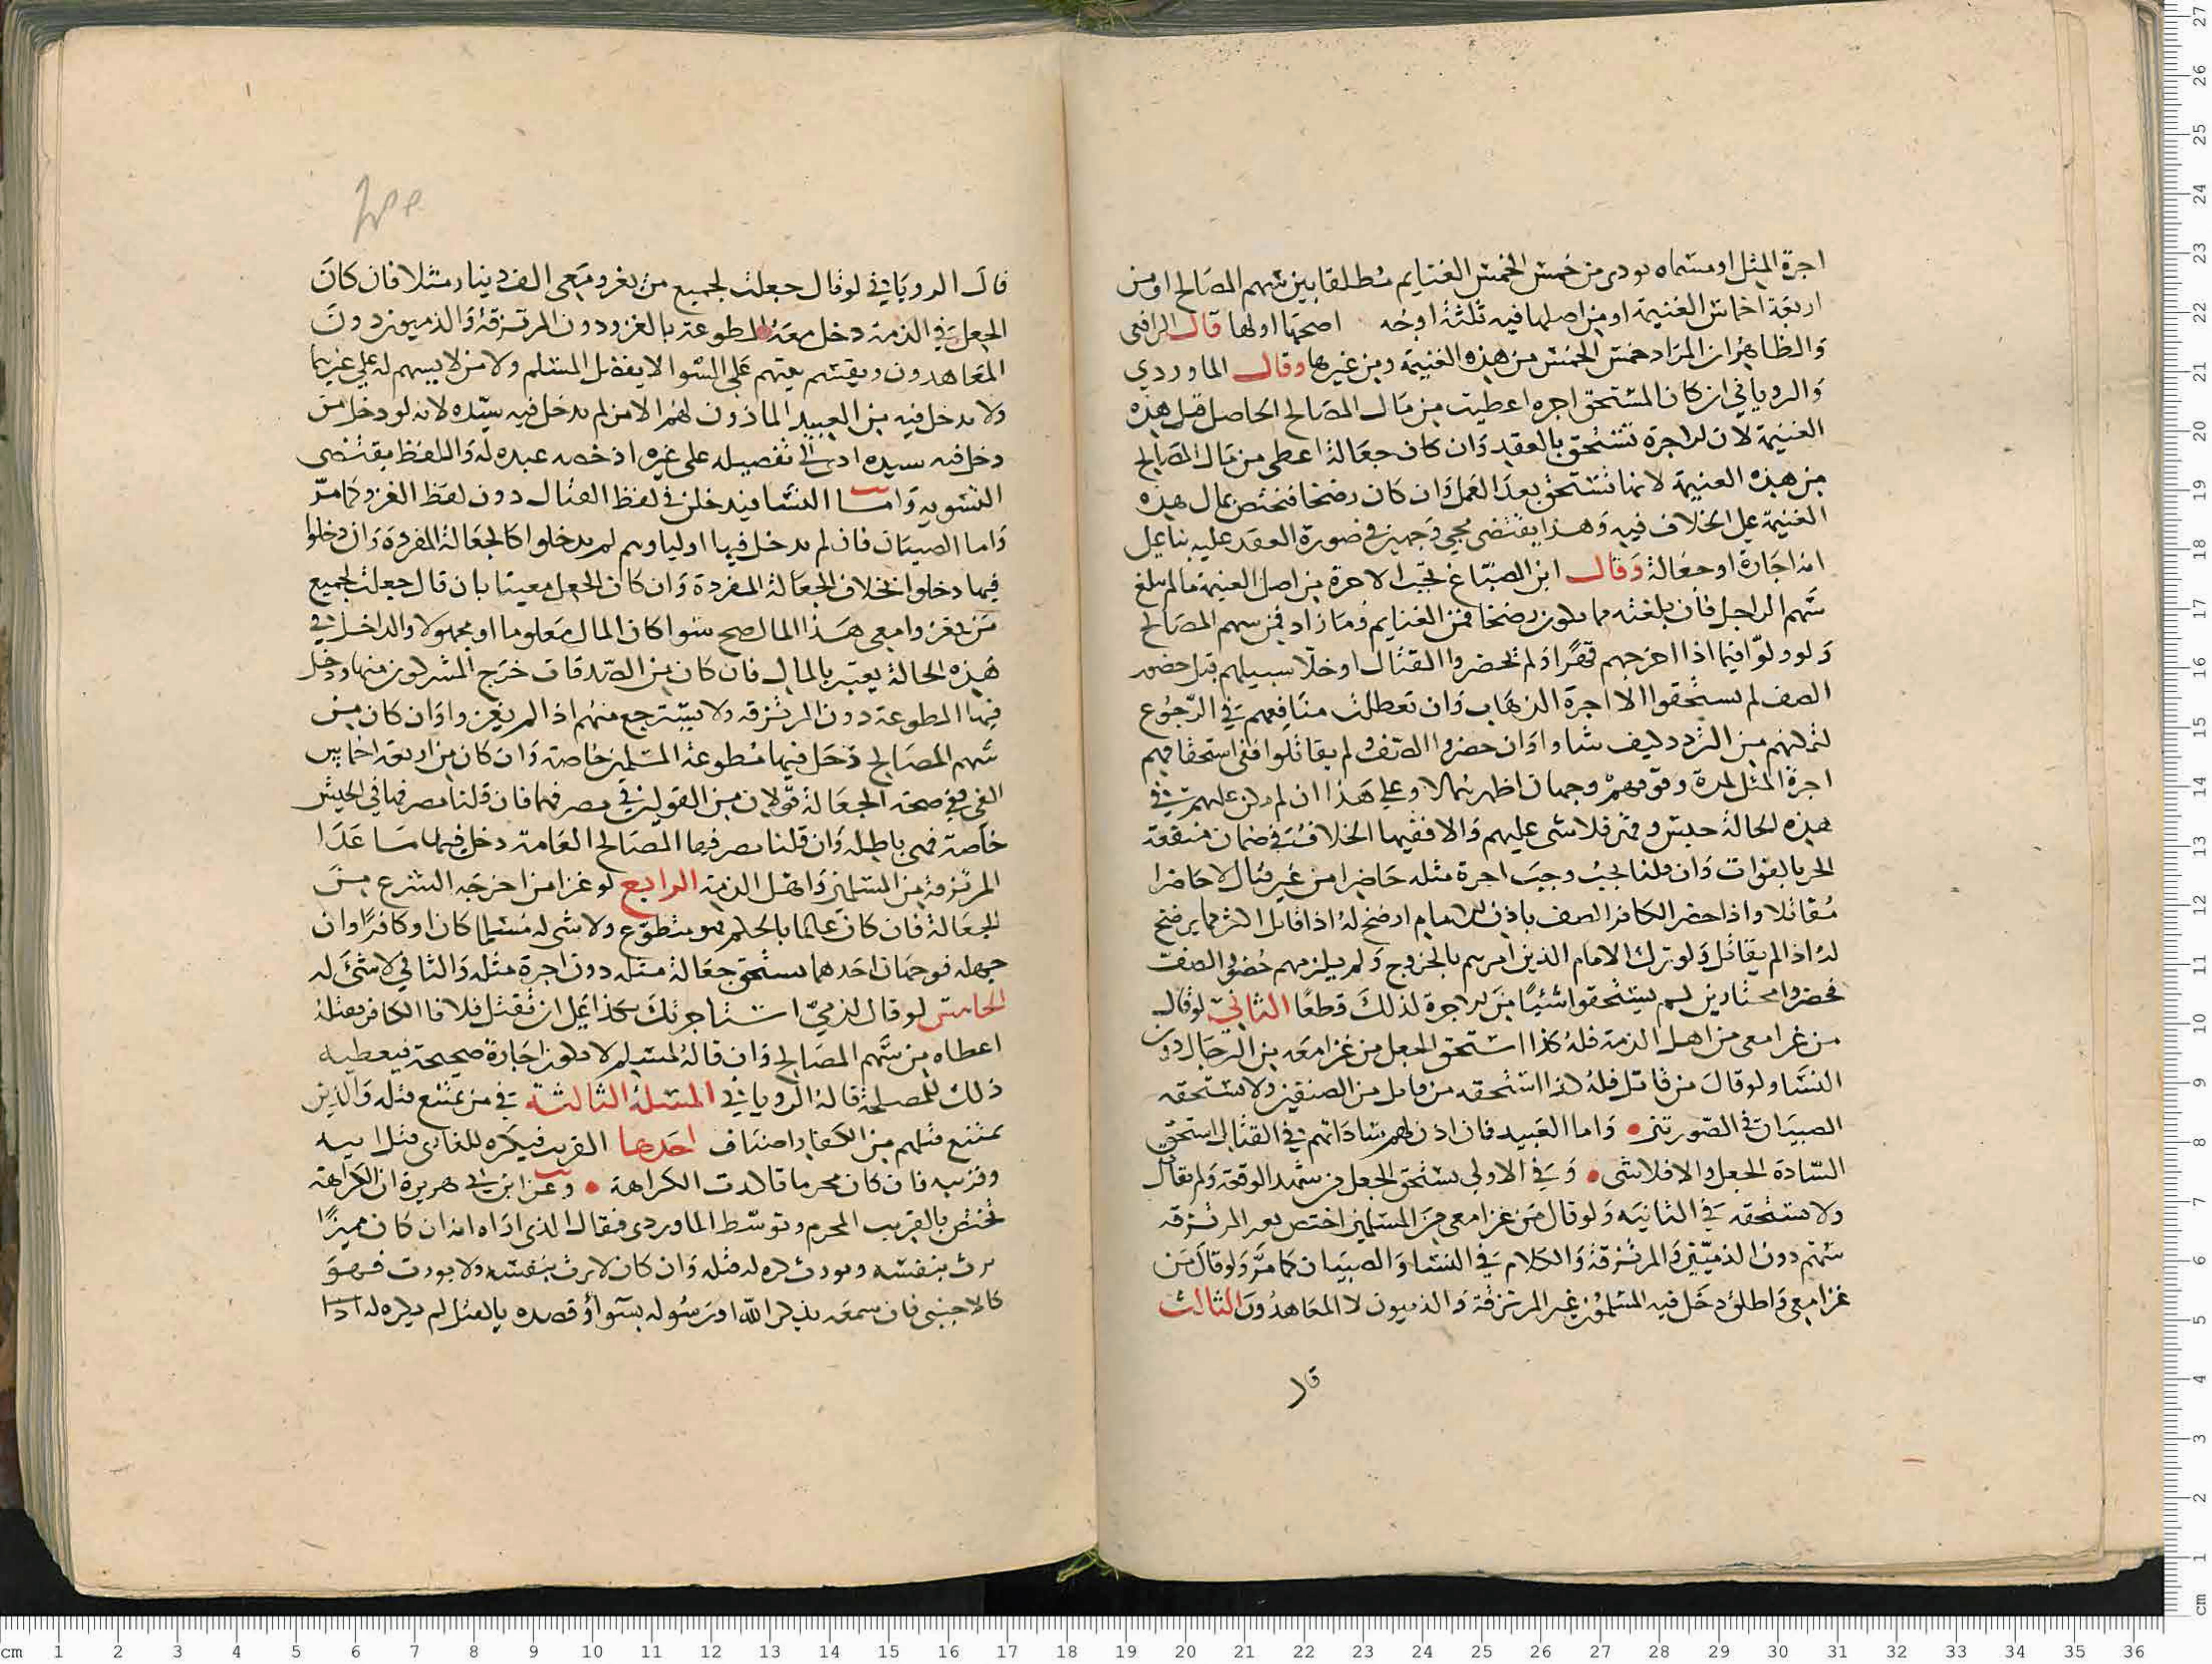 اجرة المثل او مسماه يودى من خمس الخمس الغنايم مطلقا بين سهم المصالح او من
اربعة اخماس الغنيمة او من اصلها فيه ثلثة اوجه اصحها اولها قال الرافعى
والظاهر ان المراد خمس الخمس من هذه الغنيمة ومن غيرها وقال الماوردي
والروياني ان كان المستحق اجره اعطيت من مال المصالح الحاصل قبل هذه
الغنيمة لان الاجرة تستحق بالعقد وان كان جعالة اعطى من مال المصالح
من هذه الغنيمة لانها تستحق بعد العمل وان كان رضخا فتختص بمال هذه
الغنيمة على الخلاف فيه وهذا يقتضى مجي وجهين في صورة العقد عليه بنا على
انه اجارة او جعالة وقال ابن الصباغ تجب الاجرة من اصل الغنيمة ما لم تبلغ
سهم الراجل فان بلغته مما يكون رضخا فمن الغنايم وما زاد فمن سهم المصالح
ولو ولوا فيما اذا اخرجهم قهرا ولم يحضروا القتال او خلا سبيلهم قبل حضور
الصف لم يستحقوا الا اجرة الذهاب وان تعطلت منافعهم في الرجوع
لتمكنهم من التردد كيف شاوا وان حضروا الصف ولم يقاتلوا ففى استحقاقهم
اجرة المثل لمدة وقوفهم وجهان اظهرهما لا وعلى هذا ان لم يكن عليهم في
هذه الحالة حبس وقهر فلا شى عليهم والا ففيها الخلاف في ضمان منفعة
الحر بالفوات وان قلنا تجب وجب اجرة مثله حاضرا من غير قتال لا حاضرا
مقاتلا واذا حضر الكافر الصف باذن الامام ارضخ له اذا قاتل اكثر مما يرضخ
له اذا لم يقاتل ولو ترك الامام الذين امرهم بالخروج ولم يلزمهم حضور الصف
فحضروا مختارين لم يستحقوا شيئا من الاجرة لذلك قطعا الثاني لو قال
من غزا معى من اهل الذمة فله كذا استحق الجعل من غزا معه من الرجال دون
النسا ولو قال من قاتل فله كذا استحقه من قاتل من الصنفين ولا يستحقه
الصبيان في الصورتين واما العبيد فان اذن لهم ساداتهم في القتال استحق
السادة الجعل والا فلا شى وفي الاولى يستحق الجعل من شهد الوقعة ولم يقاتل
ولا يستحقه في الثانية ولو قال من غزا معى من المسلمين اختص به المرتزقة
منهم دون الذميين والمرتزقة والكلام في النسا والصبيان كما مر ولو قال من
غزا معى واطلق دخل فيه المسلمون غير المرتزقة والذميون لا المعاهدون الثالث
قال
قال الروياني لو قال جعلت لجميع من يغزو معى الف دينار مثلا فان كان
الجعل في الذمة دخل معه المطوعة بالغزو دون المرتزقة والذميون دون
المعاهدون ويقسم بينهم على السوا لا يفضل المسلم ولا من لا يسهم له على غيرهما
ولا يدخل فيه من العبيد الماذون لهم الا من لم يدخل فيه سيده لانه لو دخل من
دخل فيه سيده ادى الى تفضيله على غيره اذ خصه عبده له واللفظ يقتضى
التسوية واما النسا فيدخلن في لفظ القتال دون لفظ الغزو كما مر
واما الصبيان فان لم يدخل فيها اولياوهم لم يدخلوا كالجعالة المفردة وان دخلوا
فيها دخلوا بخلاف الجعالة المفردة وان كان الجعل معينا بان قال جعلت لجميع
من يغزوا معى هذا المال صح سوا كان المال معلوما او مجهولا والداخل في
هذه الحالة يعتبر بالمال فان كان من الصدقات خرج المشركون منها ودخل
فيها المطوعة دون المرتزقة ولا يسترجع منهم اذا لم يغزوا وان كان من
سهم المصالح دخل فيها مطوعة المسلمين خاصة وان كان من اربعة اخماس
الفى ففى صحة الجعالة قولان من القولين في مصرفها فان قلنا مصرفها في الجيش
خاصة فهى باطلة وان قلنا مصرفها المصالح العامة دخل فيها ما عدا
المرتزقة من المسلمين واهل الذمة الرابع لو غزا من اخرجه الشرع من
الجعالة فان كان عالما بالحكم فهو متطوع ولا شى له مسلما كان او كافرا وان
جهله فوجهان احدهما يستحق جعالة مثله دون اجرة مثله والثاني لا شئ له
الخامس لو قال لذمى استاجرتك بكذا على ان تقتل فلانا الكافر فقتله
اعطاه من سهم المصالح وان قاله لمسلم لا يكون اجارة صحيحة فيعطيه
ذلك للمصلحة قاله الروياني المسئلة الثالثة في من يمتنع قتله والذين
يمتنع قتلهم من الكفار اصناف احدها القريب فيكره للغازى قتل ابيه
وقريبه فان كان محرما تاكدت الكراهة وعن ابن ابي هريرة ان الكراهة
تختص بالقريب المحرم وتوسط الماوردى فقال الذى اراه انه ان كان مميزا
يرث بنفسه ويورث كره له قتله وان كان لا يرث بنفسه ولا يورث فهو
كالاجنبى فان سمعه يذكر الله او رسوله بسوا او قصده بالقتل لم يكره له اذا